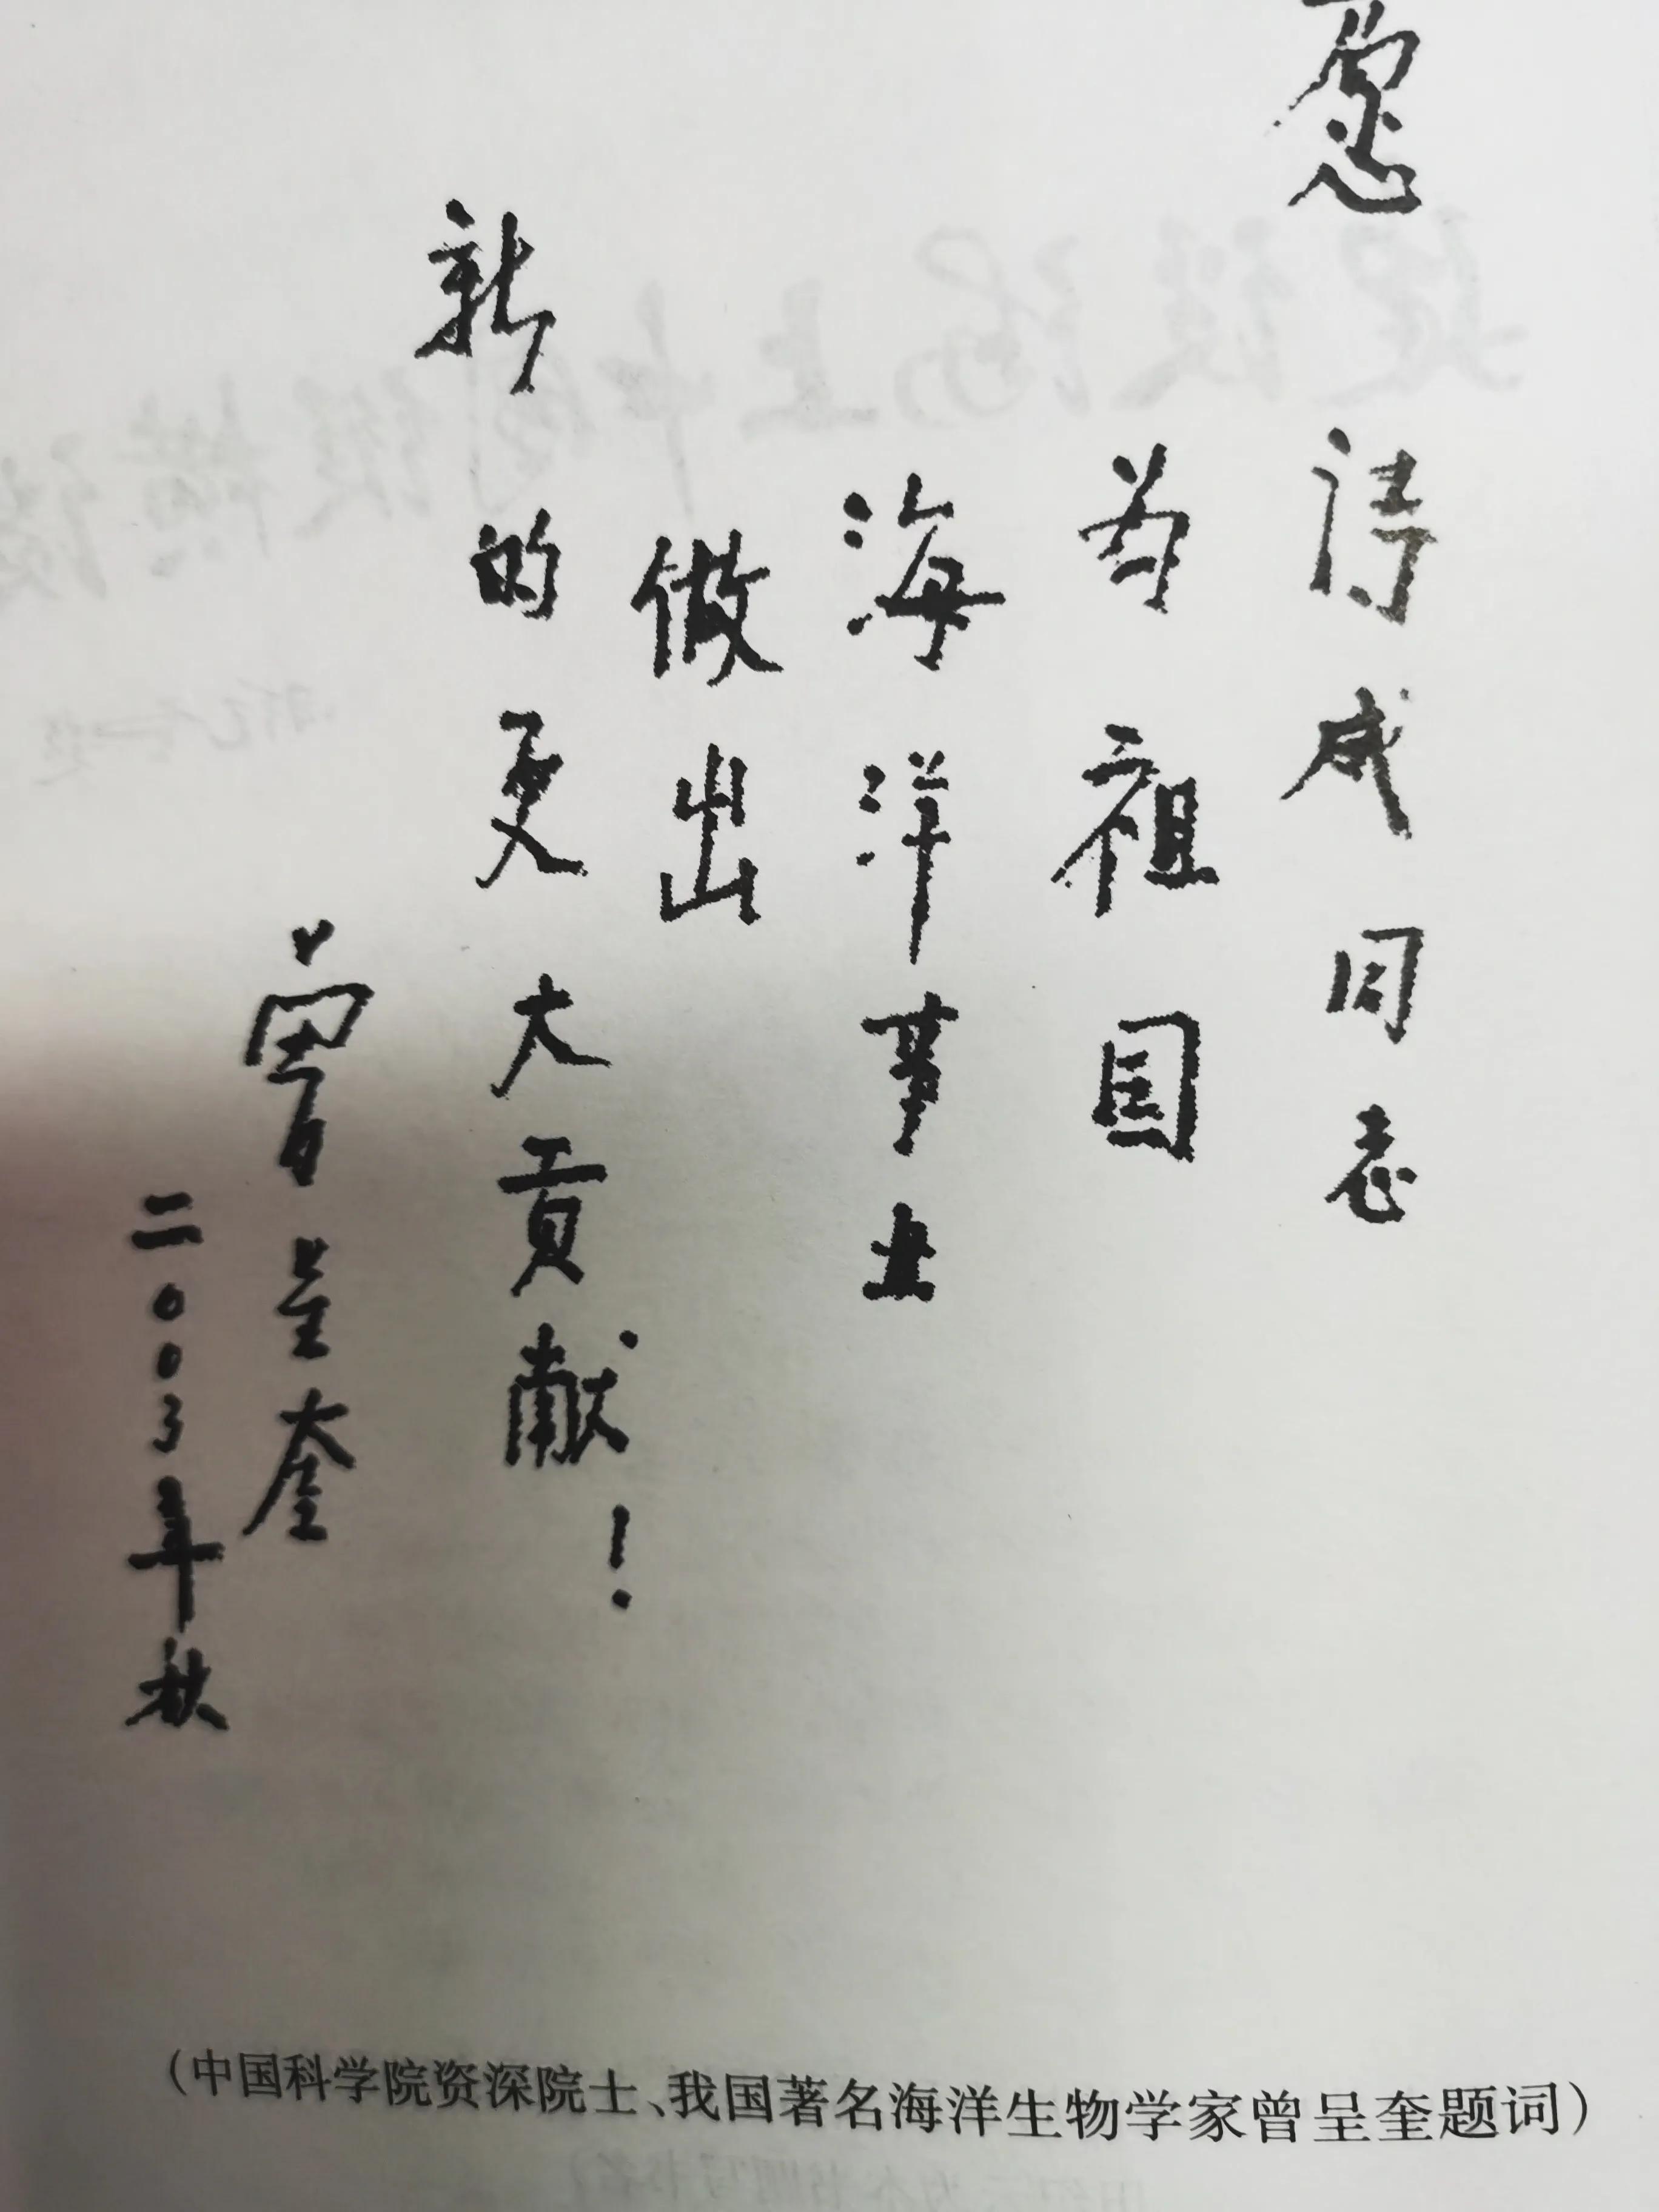 愿诗成同志
为祖国
海洋事业
做出
新的更大贡献！
曾呈奎
二００３年秋
（中国科学院资深院士、我国著名海洋生物学家曾呈奎题词）